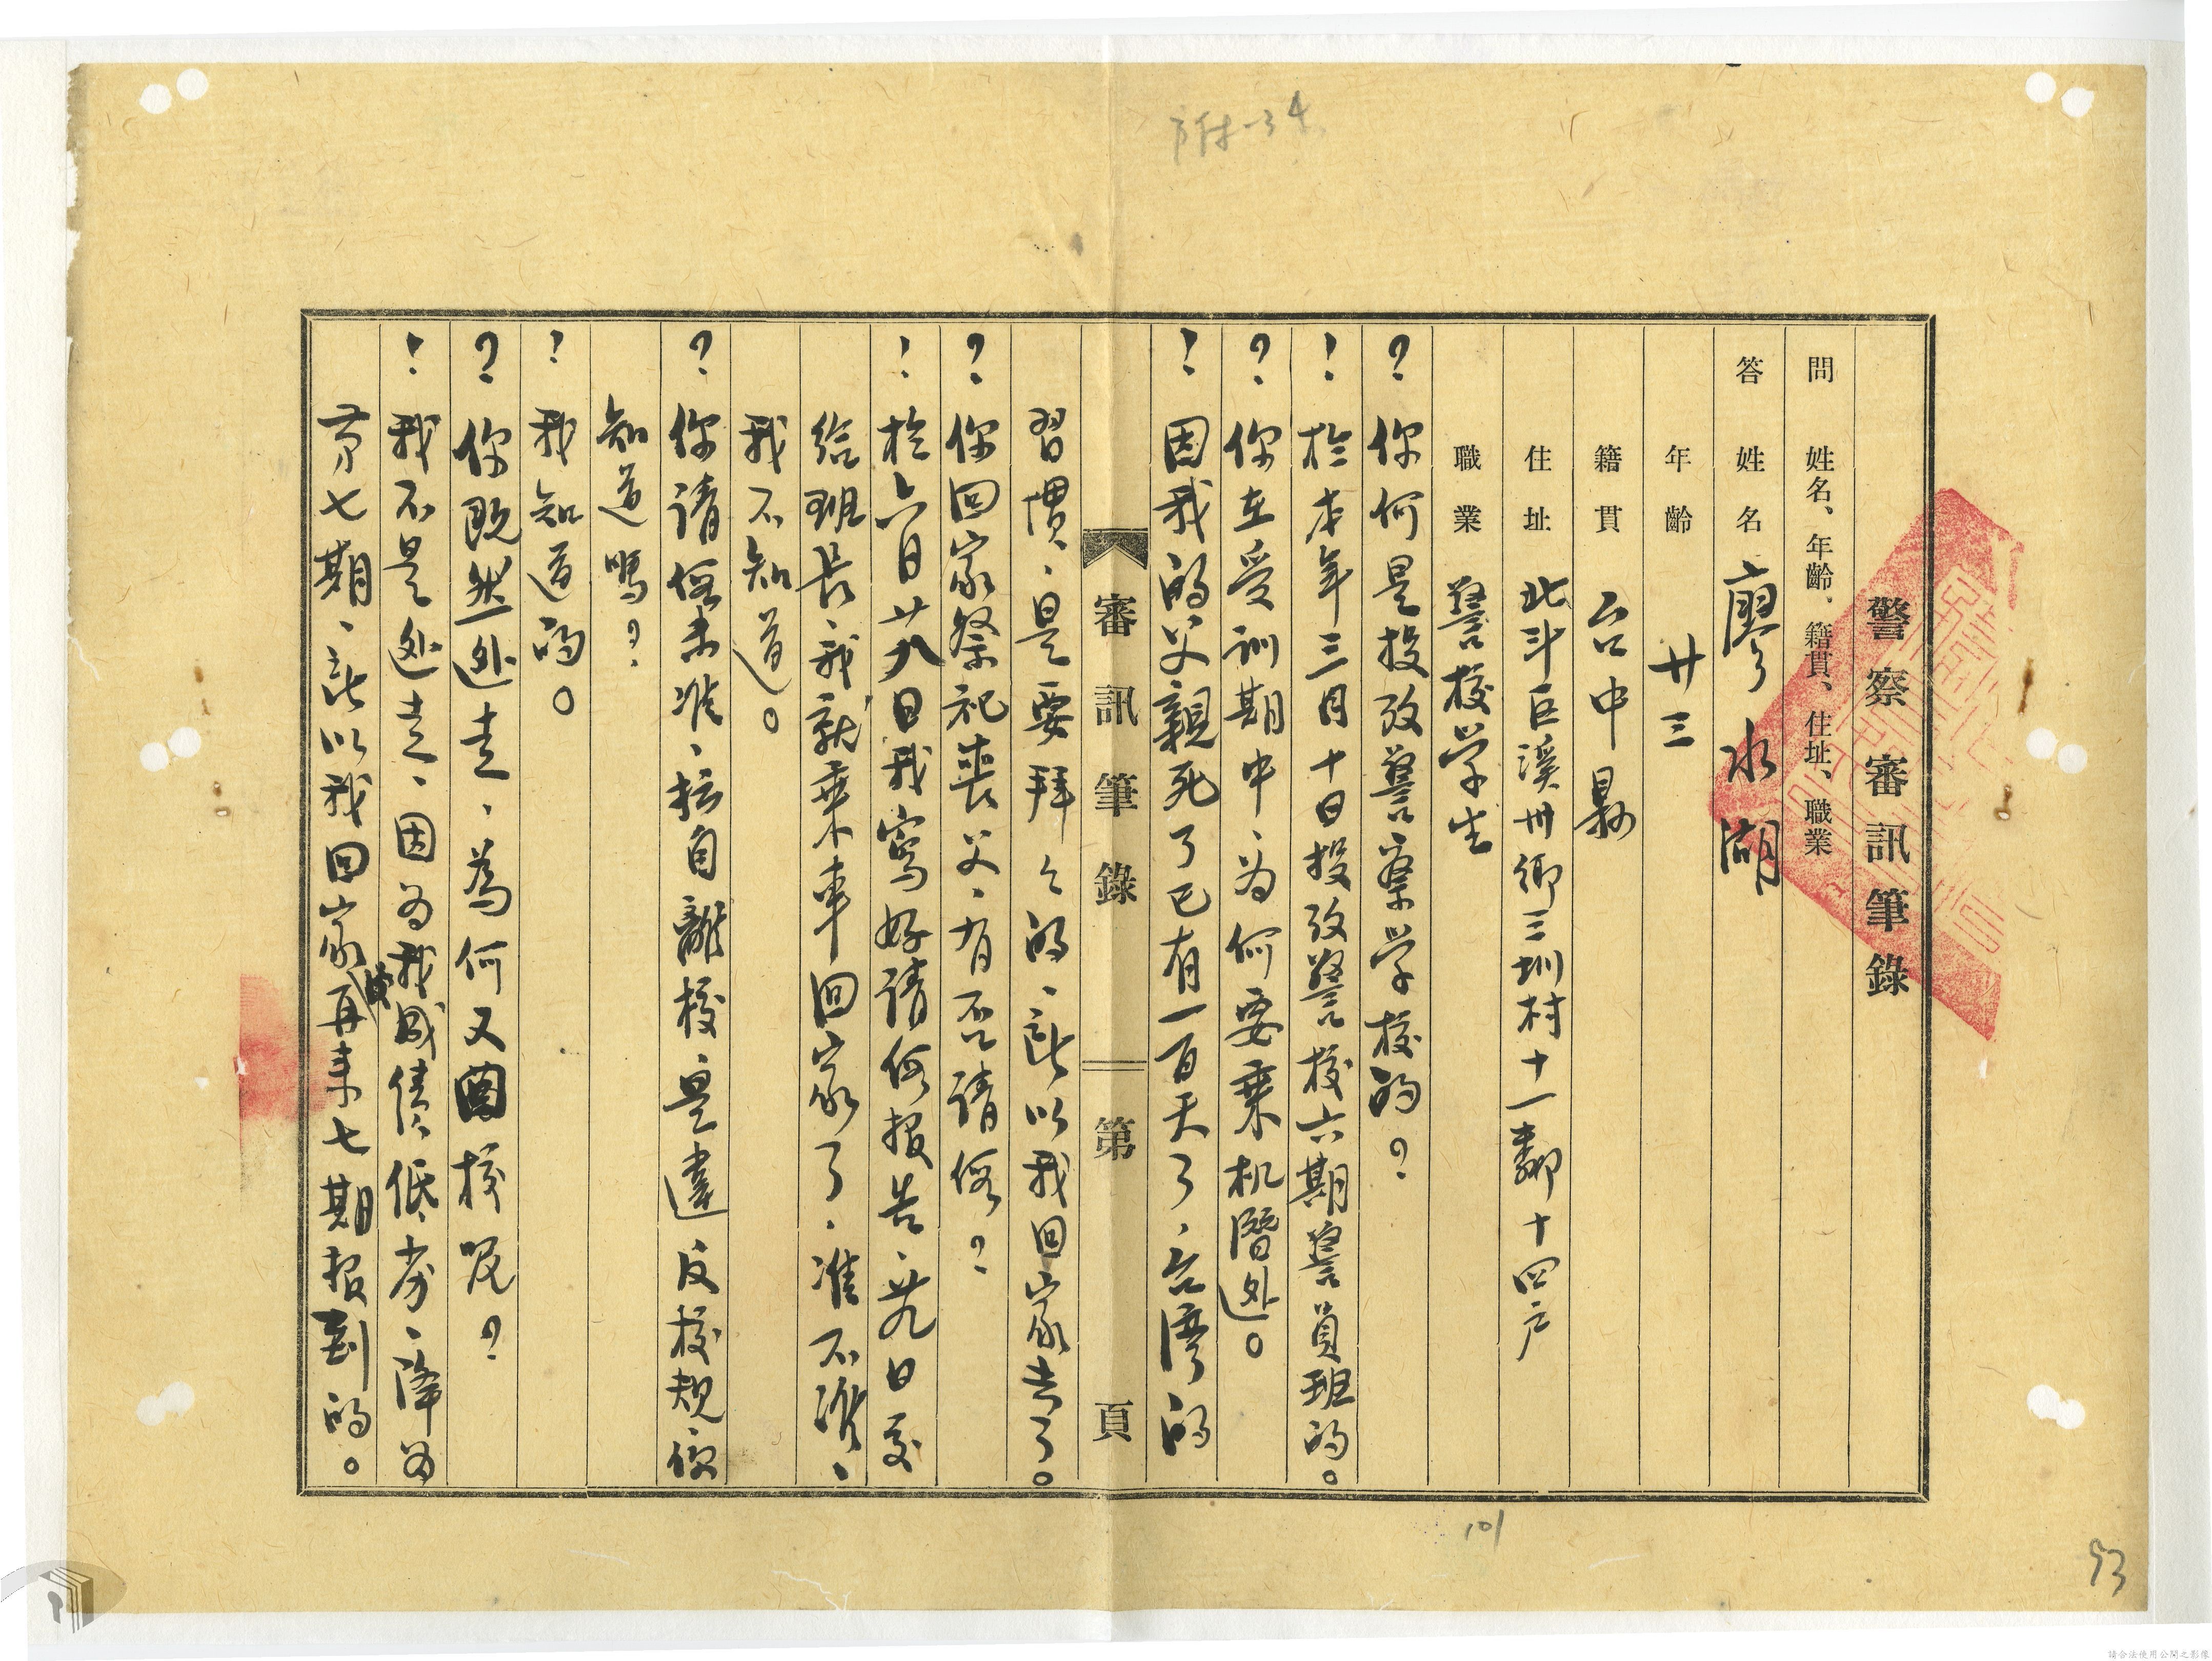 附-34
警察審訊筆錄
問 姓名、年齡、籍貫、住址、職業
答 姓名 廖水湖
年齡 廿三
籍貫 台中縣
住址 北斗区溪州鄉三圳村十一鄰十四户
職業 警校学生
? 你何是投攷警察学校的?
! 於本年三月十日投攷警校六期警員班的。
? 你在受訓期中、为何要乘机潛逃。
! 因我的父親死了已有一百天了、台湾的
審訊筆錄 第 頁
習慣、是要拜々的、所以我回家去了。
? 你回家祭祀喪父、有否請假?
! 於六月廿八日我寫好請假报告、廿九日交
給班长、我就乘車回家了、准不准、
我不知道。
? 你請假未准、擅自離校、是違反校規、你
知道嗎?
! 我知道的。
? 你既然逃走、為何又回校呢?
! 我不是逃走、因为我成績低劣、降为
第七期、所以我回家後再来七期报到的。
101
93
請合法使用公開之影像